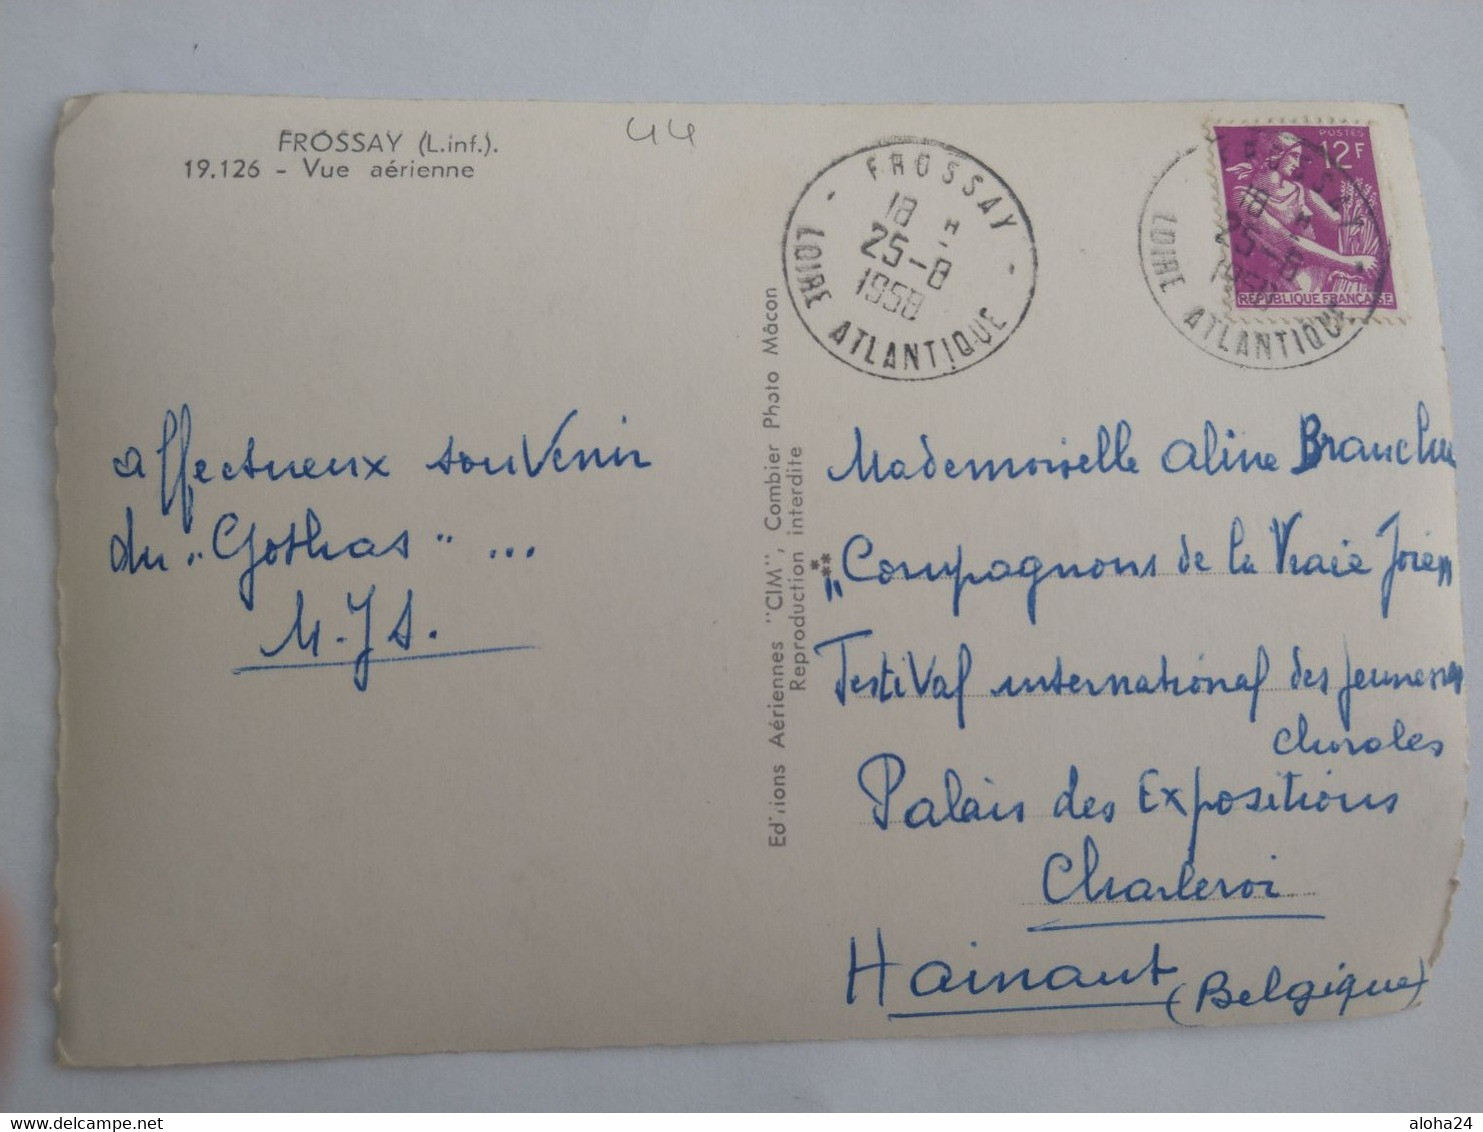 FROSSAY (L.inf.).
19.126 - Vue aérienne
44
FROSSAY
18 H
25-8
1958
LOIRE ATLANTIQUE
POSTES
12F
REPUBLIQUE FRANCAISE
FROSSAY
18 H
25-8
LOIRE ATLANTIQUE
affectueux souvenir
du "Gothas" ...
M.J.S.
Editions Aériennes "CIM", Combier Photo Mâcon
Reproduction interdite
Mademoiselle Aline
"Compagnons de la Vraie Joie"
Festival international des jeunesses
chorales
Palais des Expositions
Charleroi
Hainaut (Belgique)
www.delcampe.net
aloha24